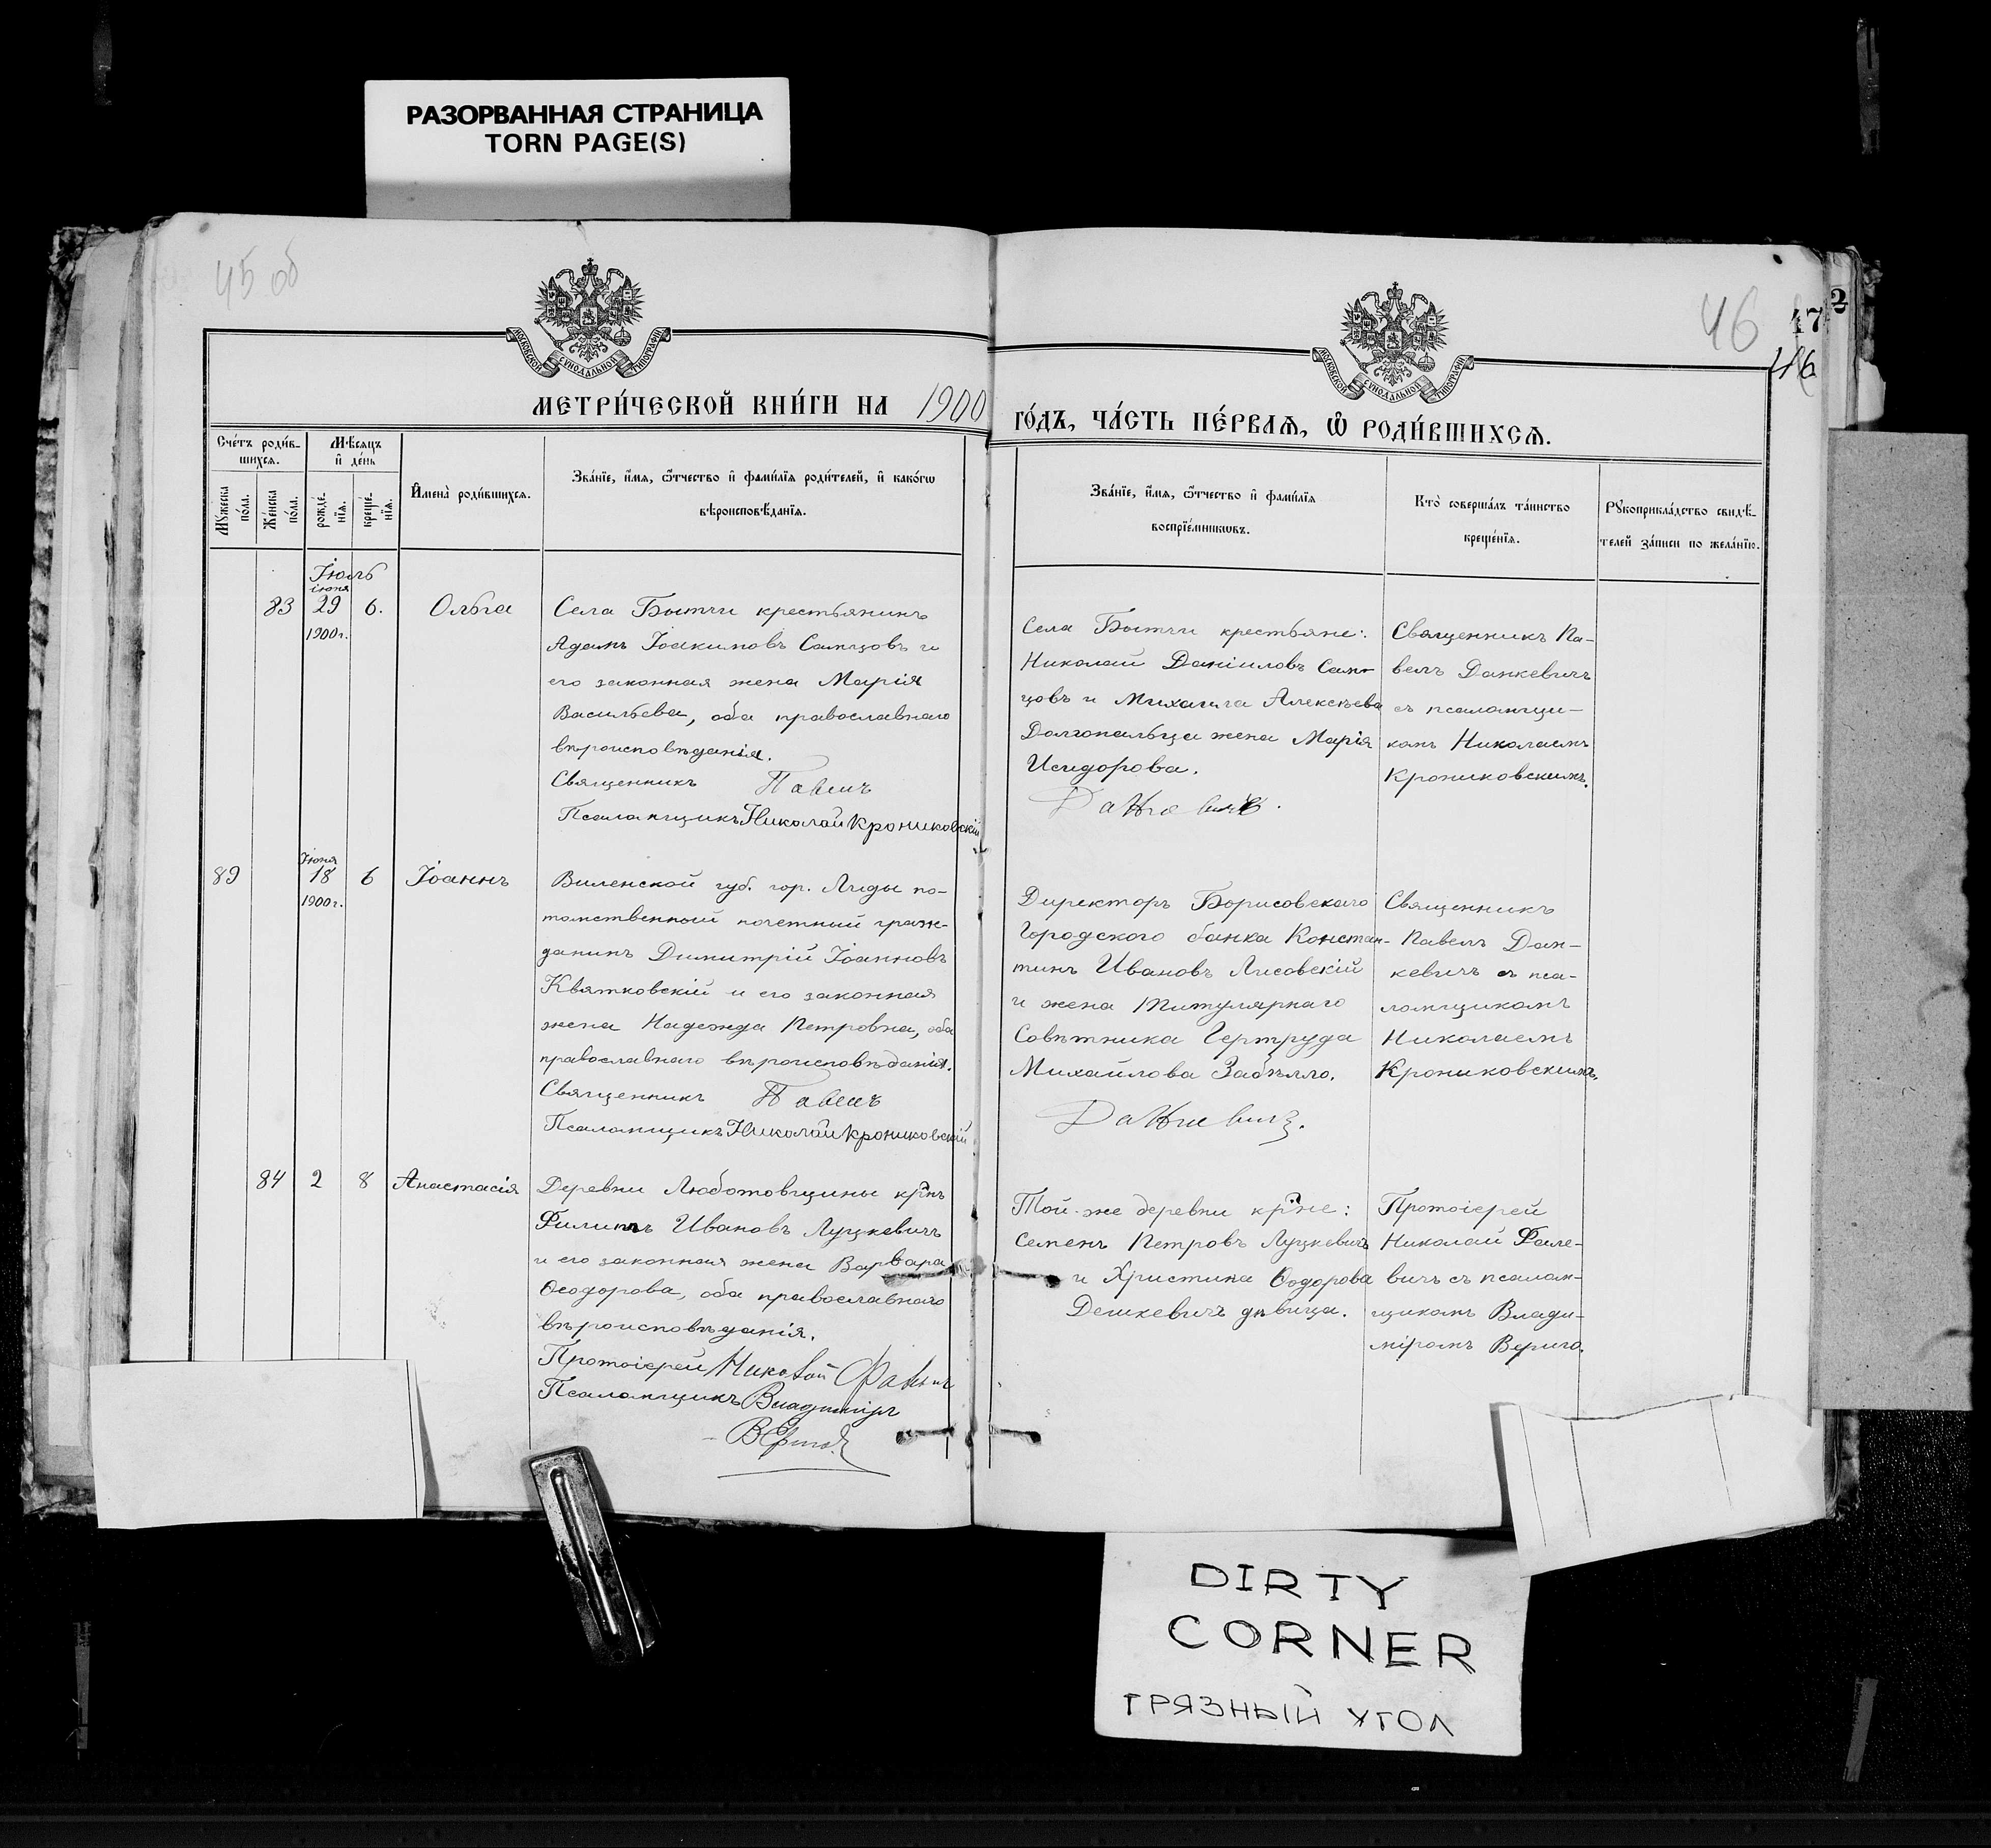 РАЗОРВАННАЯ СТРАНИЦА
TORN PAGE(S)
45 об
46
47
2
46
МОСКОВСКОЙ СѴНОДАЛЬНОЙ ТИПОГРАФІИ
МОСКОВСКОЙ СѴНОДАЛЬНОЙ ТИПОГРАФІИ
МЕТРИ́ЧЕСКОЙ КНИ́ГИ НА 1900 ГО́ДЪ, ЧА́СТЬ ПЕ́РВАѦ, Ѡ҆ РОДИ́ВШИХСѦ.
Сче́тъ роди́в-
шихсѧ.
Мꙋ́жеска по́ла.
Же́нска по́ла.
Мѣ́сѧцъ
и҆ де́нь
рожде́-
нїѧ.
креще́-
нїѧ.
И҆мена̀ роди́вшихсѧ.
Зва́нїе, и҆́мѧ, ѻ҆́тчество и҆ фамилїѧ роди́телей, и҆ како́гѡ
вѣроисповѣ́данїѧ.
Зва́нїе, и҆́мѧ, ѻ҆́тчество и҆ фами́лїѧ
воспрїе́мникѡвъ.
Кто̀ соверша́лъ та́инство
креще́нїѧ.
Рꙋкоприкла́дство свидѣ́-
телей за́писи по жела́нїю.
Іюль
іюня
83 29 6. Ольга
1900 г.
Села Бытчи крестьянинъ
Адамъ Іоакимовъ Самцовъ и
его законная жена Марія
Васильева, оба православнаго
вѣроисповѣданія.
Священникъ Павелъ
Псаломщикъ Николай Крониковскій
Села Бытчи крестьяне:
Николай Даніиловъ Сам-
цовъ и Михаила Алексѣева
Долгопальца жена Марія
Исидорова.
Данкевичъ.
Священникъ Па-
велъ Данкевичъ
съ псаломщи-
комъ Николаемъ
Крониковскимъ.
Іюня
89 18 6 Іоаннъ
1900 г.
Виленской губ. гор. Лиды по-
томственный почетный граж-
данинъ Димитрій Іоанновъ
Квятковскій и его законная
жена Надежда Петровна, оба
православнаго вѣроисповѣданія.
Священникъ Павелъ
Псаломщикъ Николай Крониковскій
Директоръ Борисовскаго
Городского банка Констан-
тинъ Ивановъ Лисовскій
и жена Титулярнаго
Совѣтника Гертруда
Михайлова Забѣлло.
Данкевичъ.
Священникъ
Павелъ Дан-
кевичъ съ пса-
ломщикомъ
Николаемъ
Крониковскимъ.
84 2 8 Анастасія
Деревни Люботовщины кр̃нъ
Филиппъ Ивановъ Луцкевичъ
и его законная жена Варвара
Ѳеодорова, оба православнаго
вѣроисповѣданія.
Протоіерей Николай Фалевичъ
Псаломщикъ Владиміръ
Верига
Той-же деревни кр̃не:
Семенъ Петровъ Луцкевичъ
и Христина Ѳеодорова
Дешкевичъ дѣвица.
Протоіерей
Николай Фале-
вичъ съ псалом-
щикомъ Влади-
міромъ Верига.
DIRTY
CORNER
ГРЯЗНЫЙ УГОЛ